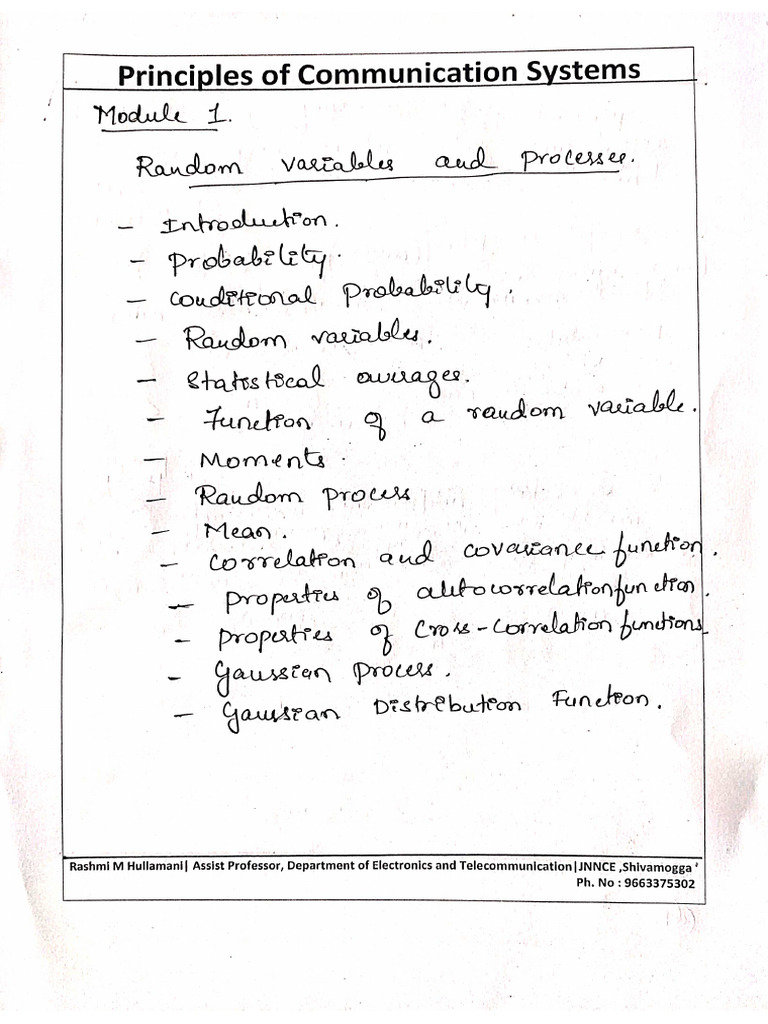 Principles of Communication Systems
Module 1.
Random variables and Processes.
– Introduction.
– Probability.
– Conditional Probability.
– Random variables.
– Statistical averages.
– Function of a random variable.
– Moments.
– Random process
– Mean.
– Correlation and covariance function.
– Properties of autocorrelation function.
– Properties of Cross-Correlation functions
– Gaussian Process.
– Gaussian Distribution Function.
Rashmi M Hullamani| Assist Professor, Department of Electronics and Telecommunication|JNNCE ,Shivamogga
Ph. No : 9663375302